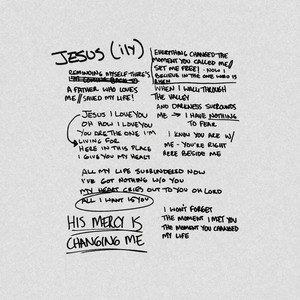 JESUS (ily)
REMINDING MYSELF THERE'S
A FATHER WHO LOVES
ME // SAVED MY LIFE!
JESUS I LOVE YOU
OH HOW I LOVE YOU
YOU ARE THE ONE I'M
LIVING FOR
HERE IN THIS PLACE
I GIVE YOU MY HEART
EVERYTHING CHANGED THE
MOMENT YOU CALLED ME //
SET ME FREE! - NOW I
BELIEVE IN THE ONE WHO IS
RISEN
WHEN I WALK THROUGH
THE VALLEY
AND DARKNESS SURROUNDS
ME → I HAVE NOTHING
TO FEAR
I KNOW YOU ARE W/
ME - YOU'RE RIGHT
HERE BESIDE ME
ALL MY LIFE SURRENDERED NOW
I'VE GOT NOTHING W/O YOU
MY HEART CRIES OUT TO YOU OH LORD
ALL I WANT IS YOU
HIS MERCY IS
CHANGING ME
I WON'T FORGET
THE MOMENT I MET YOU
THE MOMENT YOU CHANGED
MY LIFE